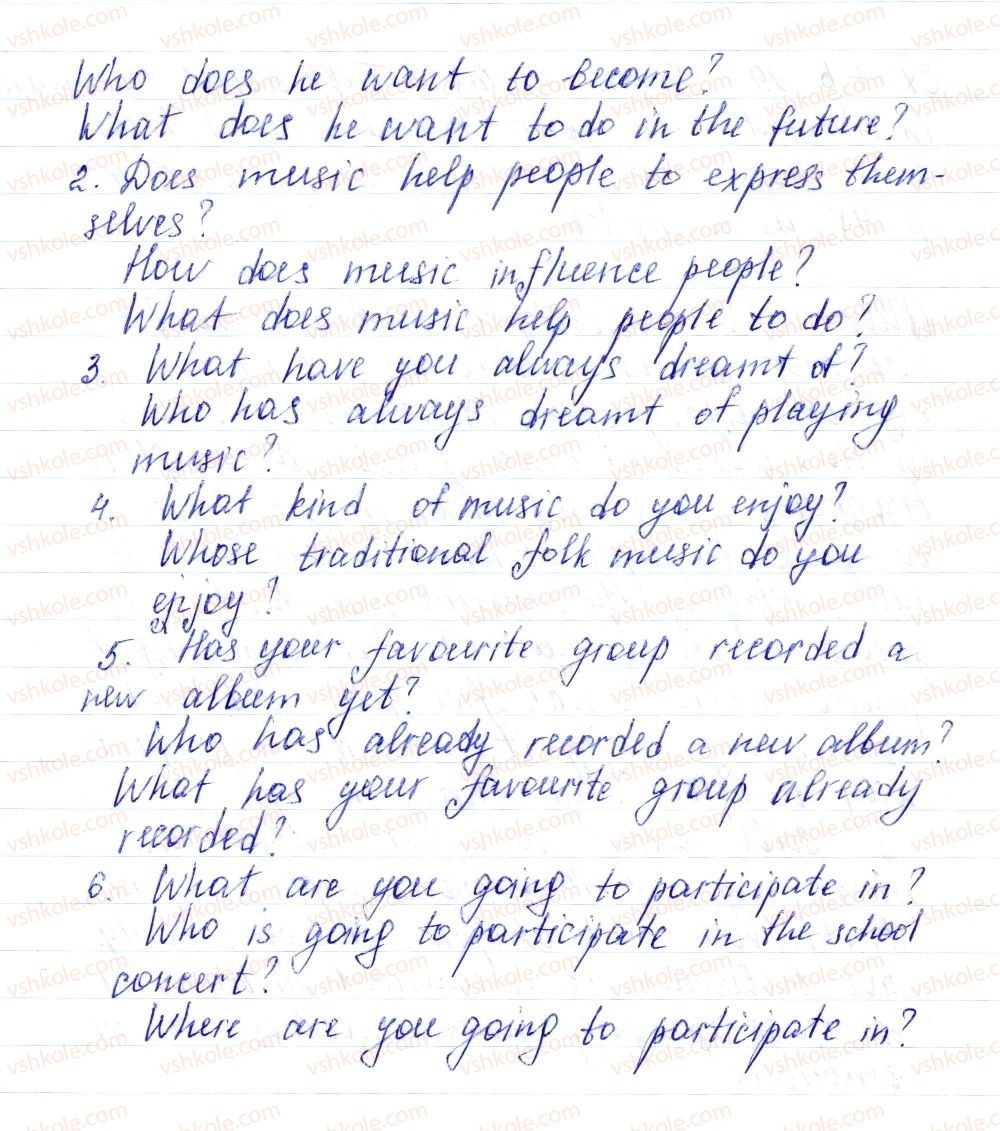 Who does he want to become?
What does he want to do in the future?
2. Does music help people to express them-
selves?
How does music influence people?
What does music help people to do?
3. What have you always dreamt of?
Who has always dreamt of playing
music?
4. What kind of music do you enjoy?
Whose traditional folk music do you
enjoy?
5. Has your favourite group recorded a
new album yet?
Who has already recorded a new album?
What has your favourite group already
recorded?
6. What are you going to participate in?
Who is going to participate in the school
concert?
Where are you going to participate in?
vshkole.com